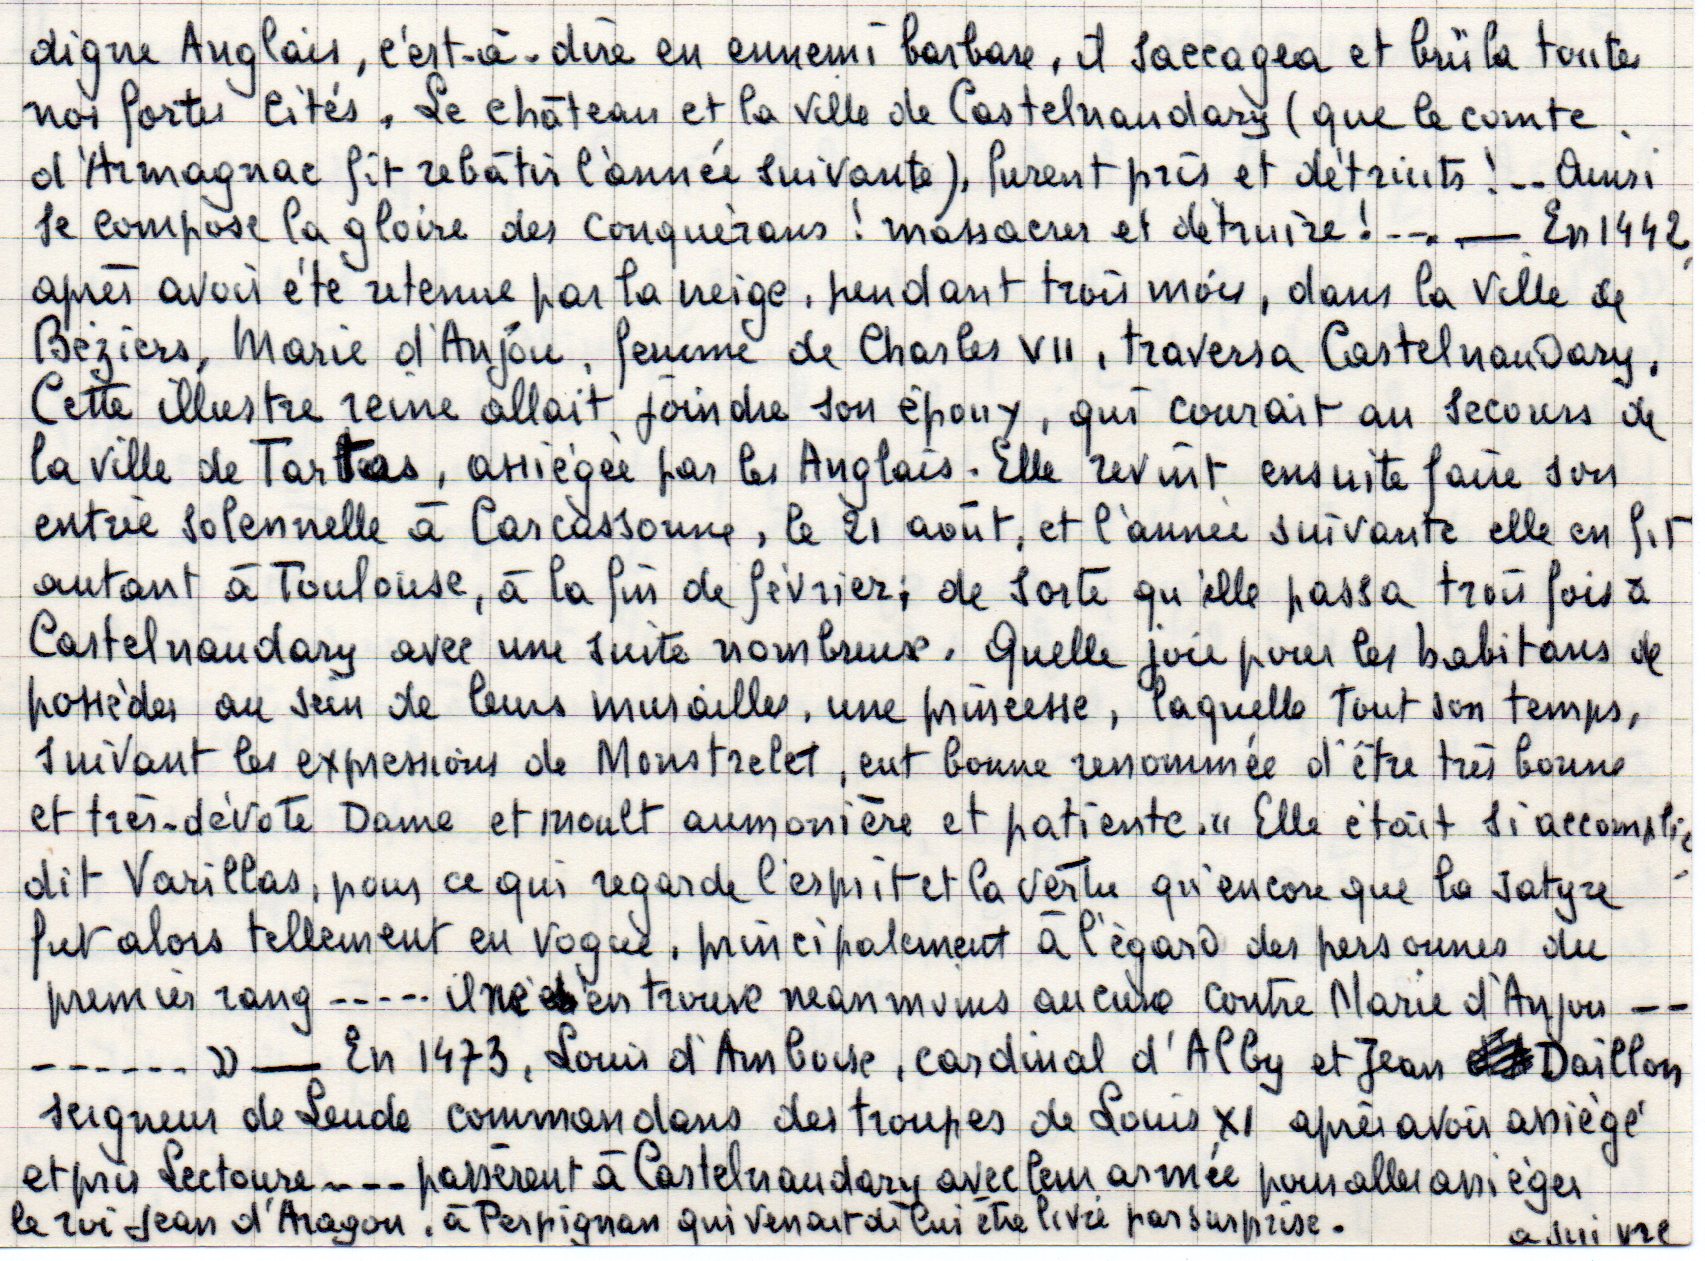 digne Anglais, c'est-à-dire en ennemi barbare, il saccagea et brûla toutes
nos fortes cités. Le château et la ville de Castelnaudary (que le comte
d'Armagnac fit rebâtir l'année suivante), furent pris et détruits !-- Ainsi
se compose la gloire des conquérans ! massacrer et détruire ! --. — En 1442,
après avoir été retenue par la neige, pendant trois mois, dans la ville de
Béziers, Marie d'Anjou, femme de Charles VII, traversa Castelnaudary.
Cette illustre reine allait joindre son époux, qui courait au secours de
la ville de Tartas, assiégée par les Anglais. Elle revint ensuite faire son
entrée solennelle à Carcassonne, le 21 août, et l'année suivante elle en fit
autant à Toulouse, à la fin de février; de sorte qu'elle passa trois fois à
Castelnaudary avec une suite nombreuse. Quelle joie pour les habitans de
posséder au sein de leurs murailles, une princesse, laquelle tout son temps,
suivant les expressions de Monstrelet, eut bonne renommée d'être très bonne
et très-dévote Dame et moult aumonière et patiente." Elle était si accomplie
dit Varillas, pour ce qui regarde l'esprit et la vertu qu'encore que la satyre
fut alors tellement en vogue, principalement à l'égard des personnes du
premier rang ----- il ne s'en trouve neanmoins aucune contre Marie d'Anjou --
------ » — En 1473, Louis d'Amboise, cardinal d'Alby et Jean Daillon
seigneur de Leude commandans des troupes de Louis XI après avoir assiégé
et pris Lectoure ---- passèrent à Castelnaudary avec leur armée pour aller assiéger
le roi Jean d'Aragon, à Perpignan qui venait de lui être livré par surprise.
a suivre